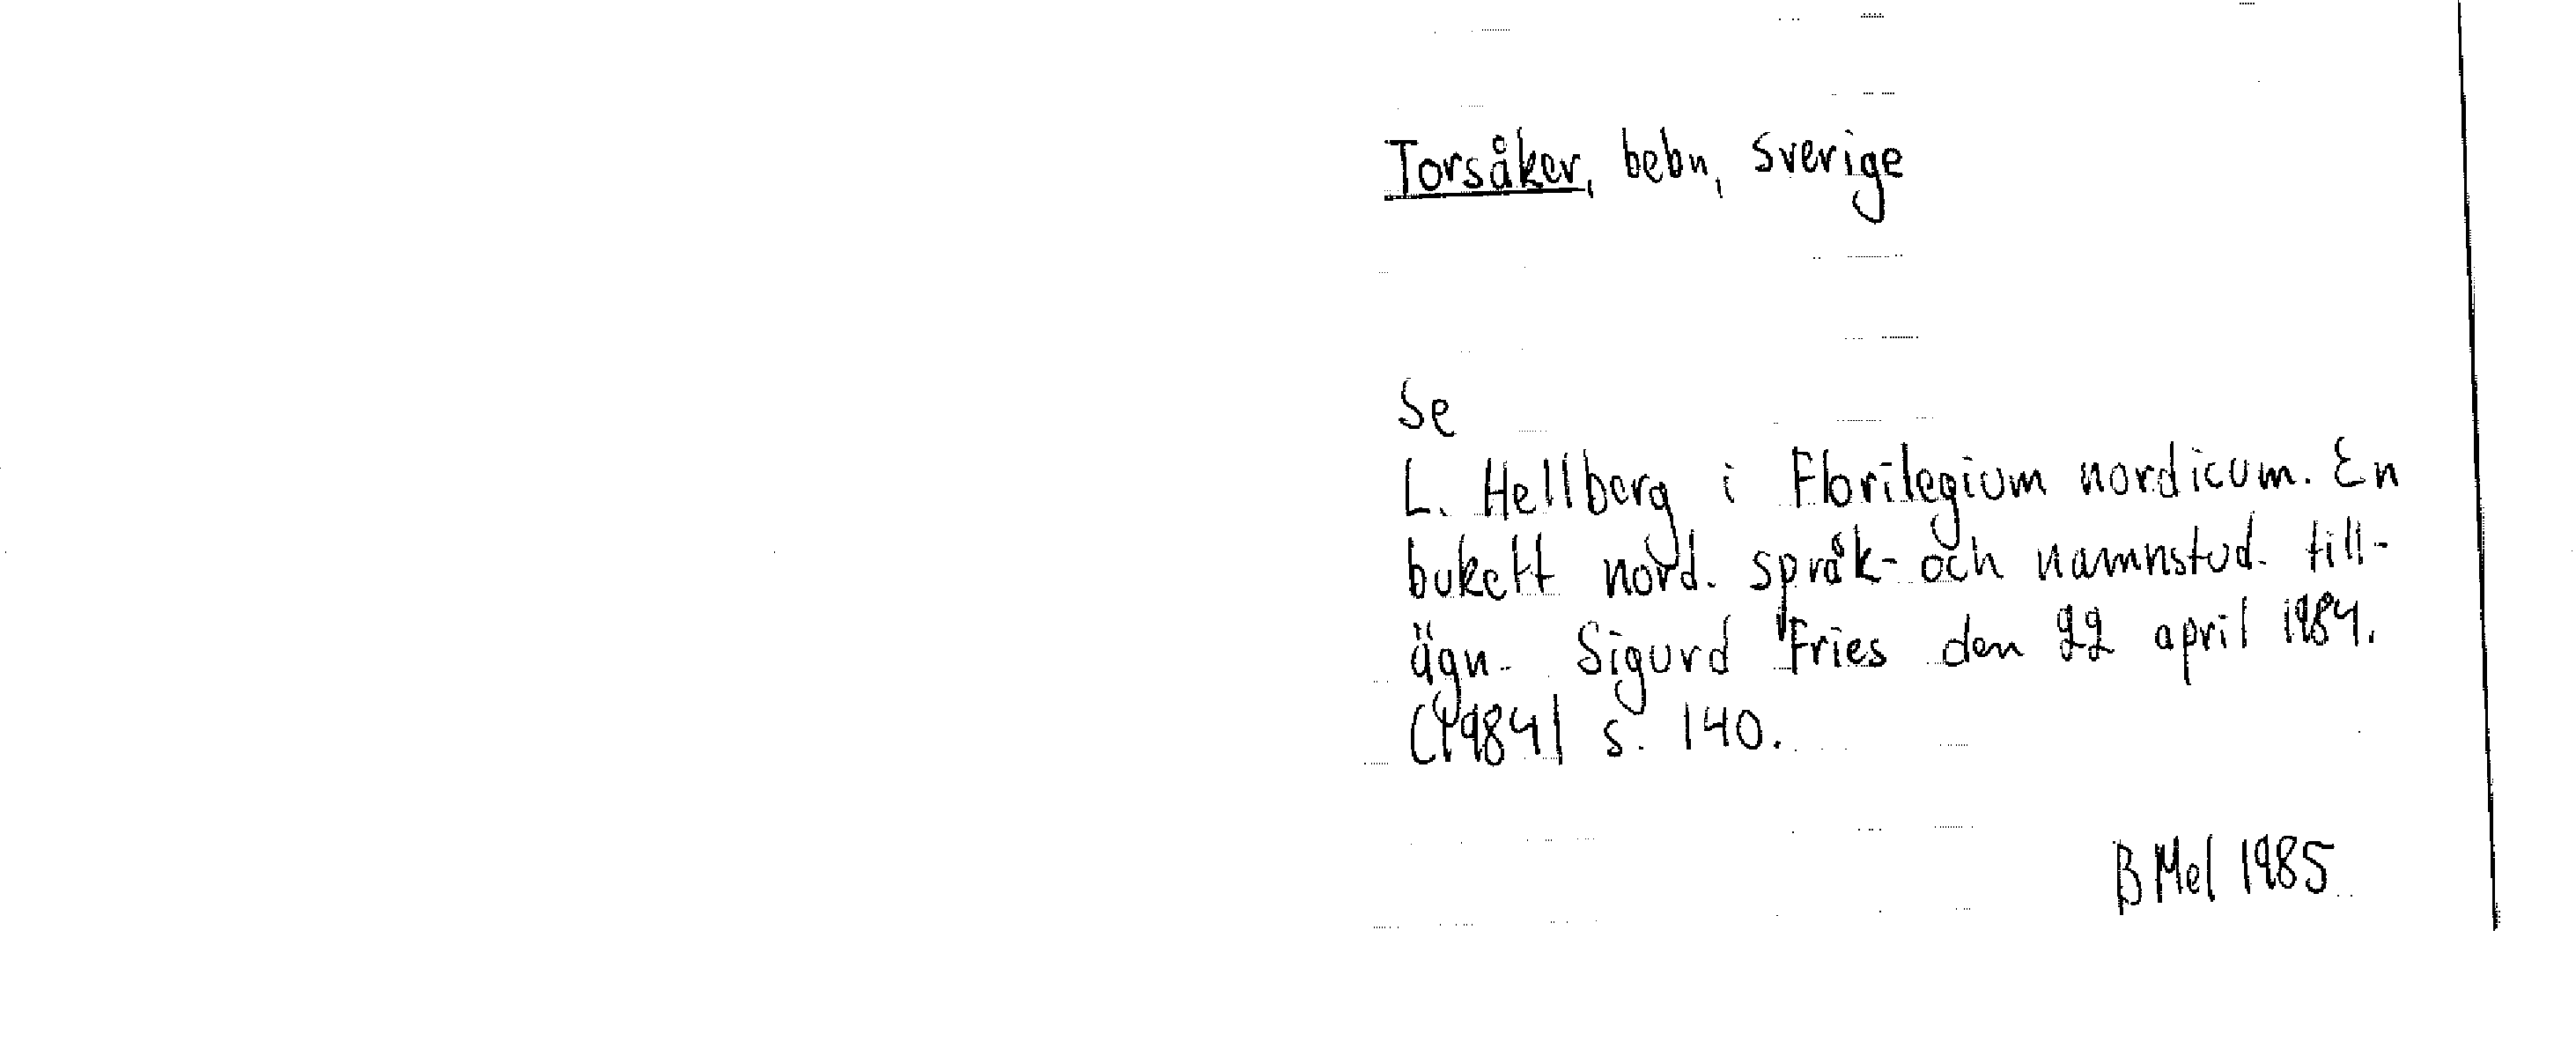 Torsåker, bebn, Sverige
Se
L. Hellberg i Florilegium nordicum. En
bukett nord. språk- och namnstud. till-
ägn. Sigurd Fries den 22 april 1984.
(1984) s. 140.
B Mel 1985